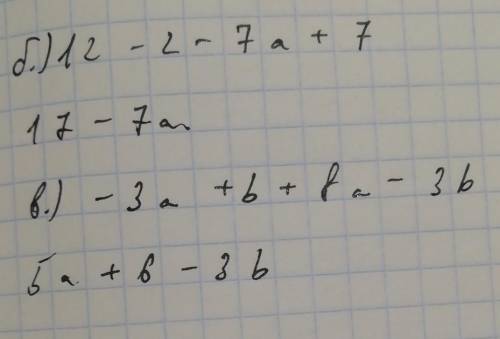 б.) 12 - 2 - 7a + 7
17 - 7a
в.) - 3a + b + 8a - 3b
5a + b - 3b